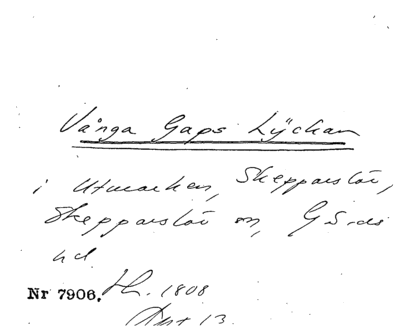 Vånga Gaps Lÿckan
i Utmarken, Skepparslöv,
Skepparslöv sn, Gärds
hd
Nr 7906. H. 1808
Akt 13